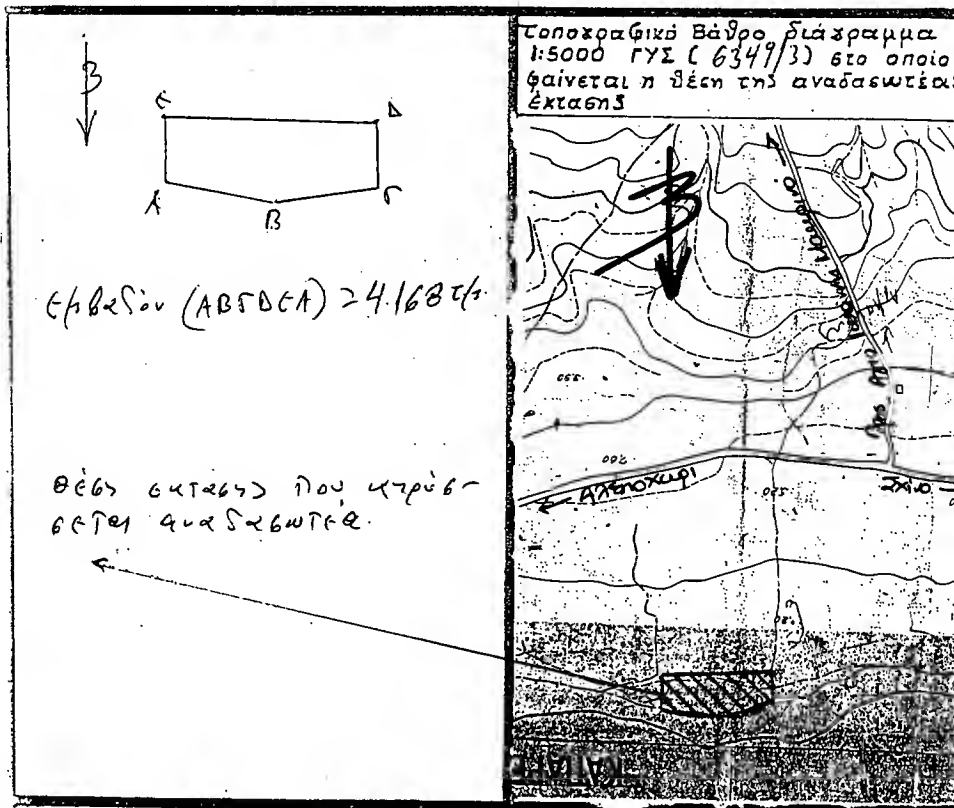 Β
Ε
Δ
Α
Β
Γ
Εμβαδόν (ΑΒΓΔΕΑ) = 4.168 τ.μ.
Θέση εκτάσης που κηρύσ-
σεται αναδασωτέα.
Τοπογραφικό Βάθρο διάγραμμα
1:5000 ΓΥΣ (6349/3) στο οποίο
φαίνεται η θέση της αναδασωτέας
έκτασης
Β
Προς Αγιο
200
Αλεποχώρι
Σχίνο